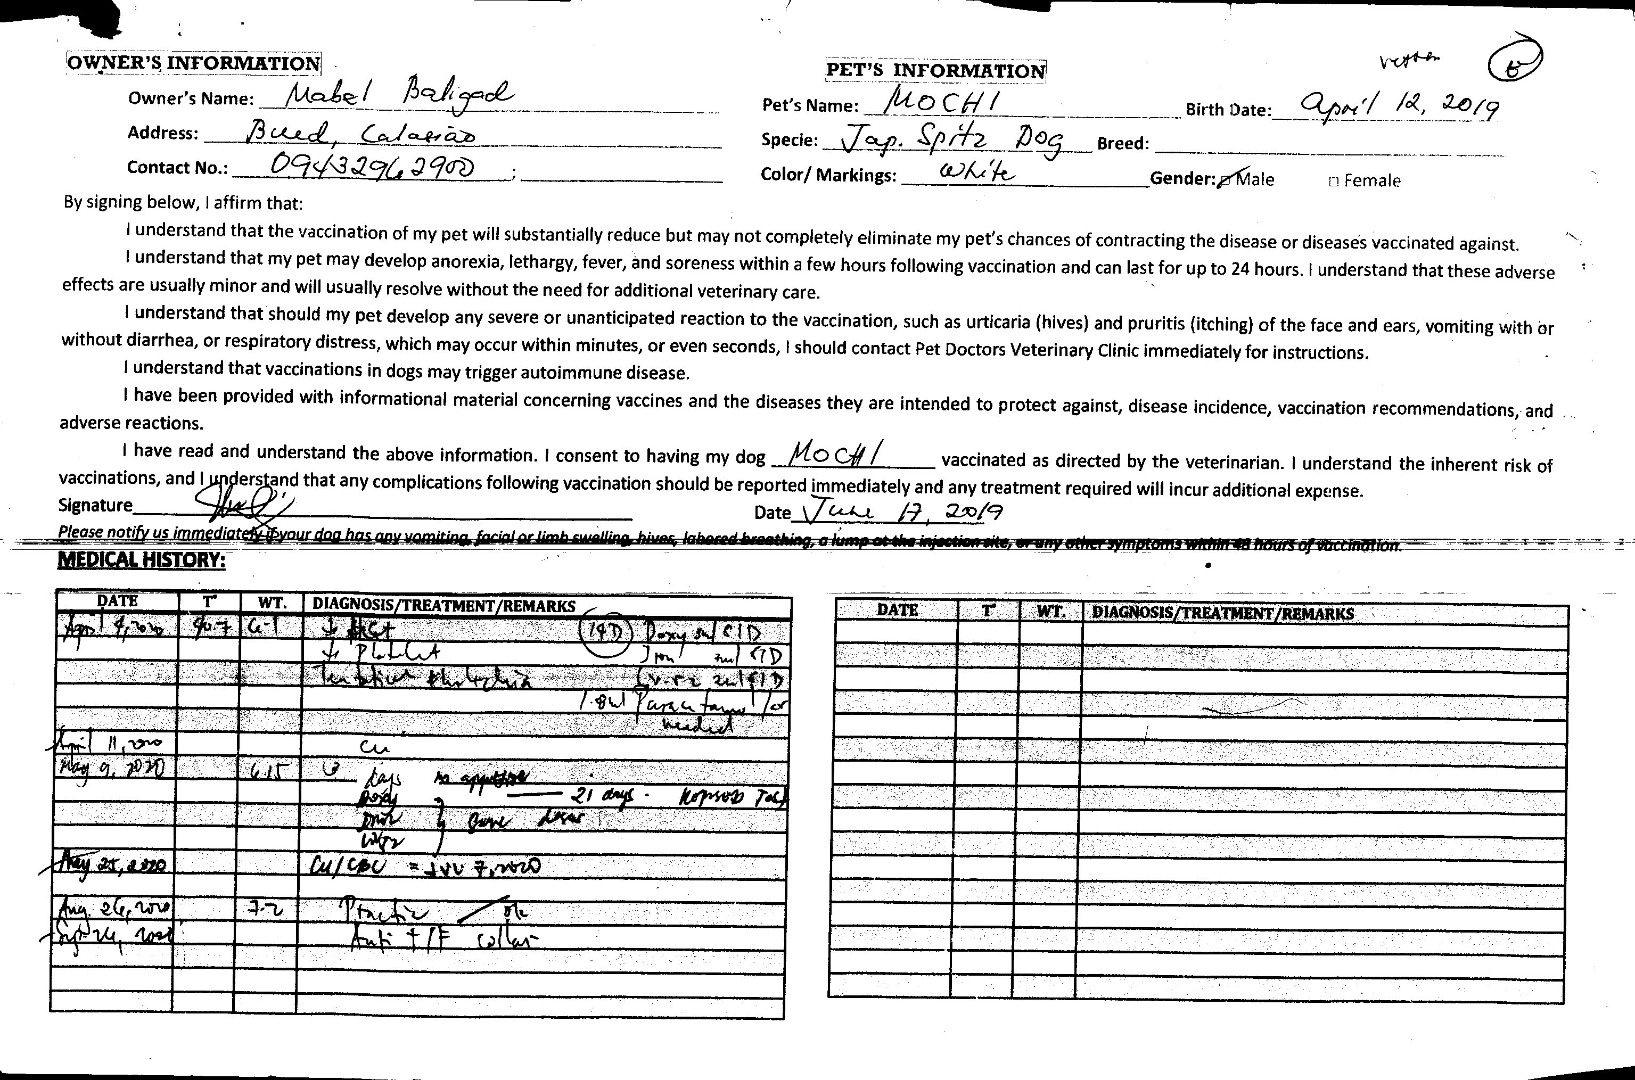 OWNER'S INFORMATION
Owner's Name: Mabel Baligad
Address: Bued, Calasiao
Contact No.: 09432962900 ;
PET'S INFORMATION
Pet's Name: MOCHI Birth Date: April 12, 2019
Specie: Jap. Spitz Dog Breed:
Color/ Markings: White Gender: Male Female
By signing below, I affirm that:
I understand that the vaccination of my pet will substantially reduce but may not completely eliminate my pet's chances of contracting the disease or diseases vaccinated against.
I understand that my pet may develop anorexia, lethargy, fever, and soreness within a few hours following vaccination and can last for up to 24 hours. I understand that these adverse
effects are usually minor and will usually resolve without the need for additional veterinary care.
I understand that should my pet develop any severe or unanticipated reaction to the vaccination, such as urticaria (hives) and pruritis (itching) of the face and ears, vomiting with or
without diarrhea, or respiratory distress, which may occur within minutes, or even seconds, I should contact Pet Doctors Veterinary Clinic immediately for instructions.
I understand that vaccinations in dogs may trigger autoimmune disease.
I have been provided with informational material concerning vaccines and the diseases they are intended to protect against, disease incidence, vaccination recommendations, and
adverse reactions.
I have read and understand the above information. I consent to having my dog MOCHI vaccinated as directed by the veterinarian. I understand the inherent risk of
vaccinations, and I understand that any complications following vaccination should be reported immediately and any treatment required will incur additional expense.
Signature Date June 17, 2019
Please notify us immediately if your dog has any vomiting, facial or limb swelling, hives, labored breathing, a lump at the injection site, or any other symptoms within 48 hours of vaccination.
MEDICAL HISTORY:
DATE T° WT. DIAGNOSIS/TREATMENT/REMARKS
April 4, 2020 40.7 6.1 ↓ HCt 14D Doxy
↓ Platelet
Paracetamol
needed
April 11, 2020 CU
May 9, 2020 6.15 no appetite
21 days
same
May 25, 2020 CU/CBC
Aug. 26, 2020 7.2 ok
Anti T/F collar
DATE T° WT. DIAGNOSIS/TREATMENT/REMARKS